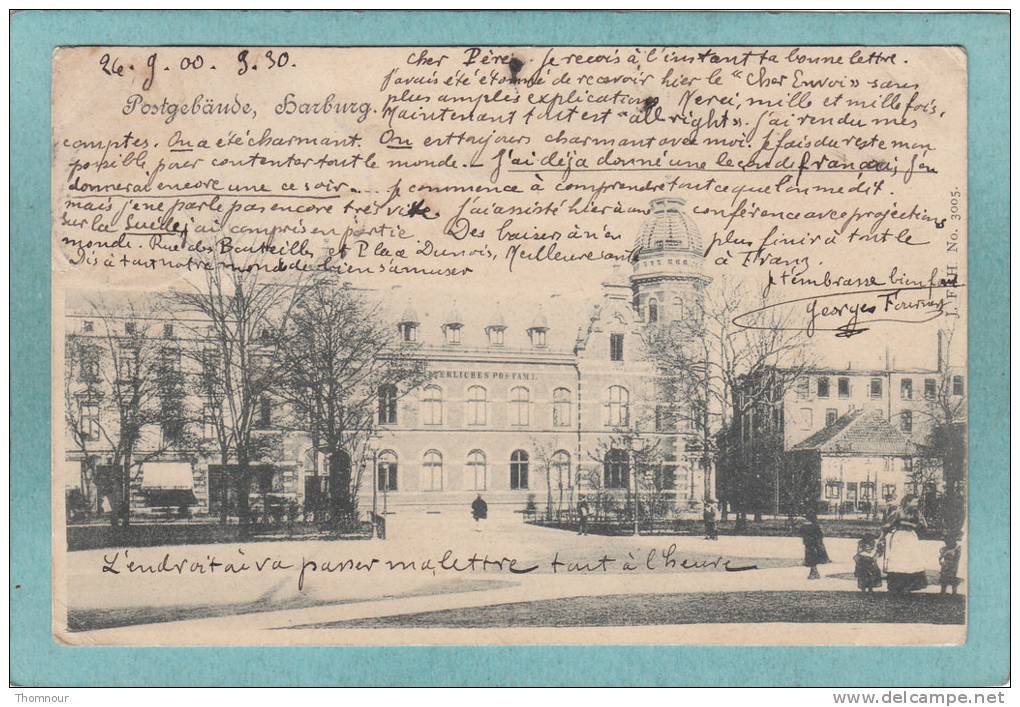 26. 9. 00. 9.30.
Cher Père. Je reçois à l'instant ta bonne lettre.
J'avais été étonné de recevoir hier le "Cher Envoi" sans
Postgebäude, Harburg.
plus amples explications. Merci, mille et mille fois.
Maintenant tout est "all right". J'ai rendu mes
comptes. On a été charmant. On est toujours charmant avec moi. Je fais du reste mon
possible pour contenter tout le monde. J'ai déjà donné une leçon de français, j'en
donnerai encore une ce soir. Je commence à comprendre tout ce que l'on me dit.
mais je ne parle pas encore très vite. J'ai assisté hier à une conférence avec projections
sur la Suède, j'ai compris en partie Des baisers à n'en plus finir à tout le
monde. Rue des Bouteilles et Place Dunois, Meilleure santé à Franz.
Dis à tout notre monde de bien s'amuser
Je t'embrasse bien fort
Georges
J. F. H No. 3005.
KAISERLICHES POSTAMT.
L'endroit où va passer ma lettre tout à l'heure
Thomnour
http://www.delcampe.net